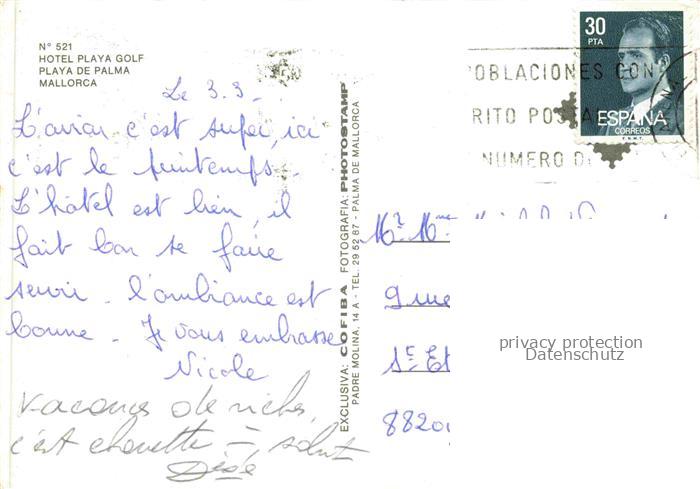 N° 521
HOTEL PLAYA GOLF
PLAYA DE PALMA
MALLORCA
Le 3.3_
L'avion c'est super, ici
c'est le printemps.
L'hôtel est bien, il
fait bon se faire
servir. l'ambiance est
bonne. Je vous embrasse
Nicole
Vacances de riches,
c'est chouette =, salut
EXCLUSIVA: COFIBA FOTOGRAFIA: PHOTOSTAMP
PADRE MOLINA, 14 A - TEL. 29 52 87 - PALMA DE MALLORCA
30
PTA
ESPAÑA
CORREOS
F.N.M.T.
OBLACIONES CON
RITO POSTA
NUMERO D
Mr. Mme
9 rue
St Et
8820
privacy protection
Datenschutz